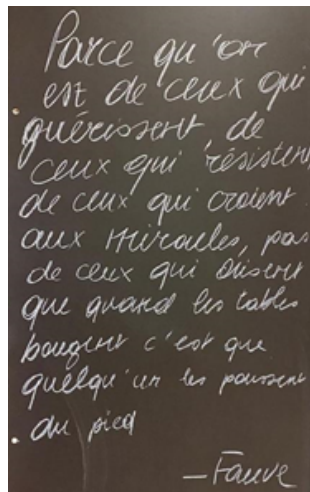 Parce qu'on
est de ceux qui
guérissent de
ceux qui résistent,
de ceux qui croient
aux miracles, pas
de ceux qui disent
que quand les tables
bougent c'est que
quelqu'un les poussent
du pied
— Fauve